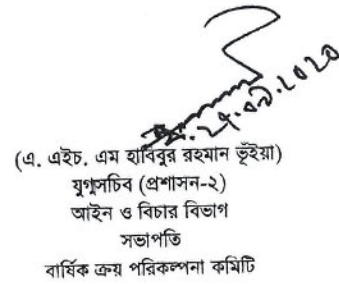 ২৭.০৯.২০২০
(এ. এইচ. এম হাবিবুর রহমান ভূঁইয়া)
যুগ্মসচিব (প্রশাসন-২)
আইন ও বিচার বিভাগ
সভাপতি
বার্ষিক ক্রয় পরিকল্পনা কমিটি